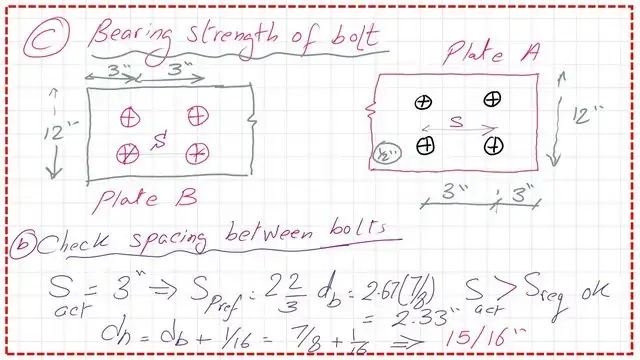 Ⓒ Bearing strength of bolt
Plate A
3" 3"
12"
S
Plate B
S
1/2"
12"
3" 3"
ⓑ Check spacing between bolts
S act = 3" ⇒ S Pref = 2 2/3 db = 2.67(7/8) S act > S req ok
= 2.33"
dh = db + 1/16 = 7/8 + 1/16 ⇒ 15/16"